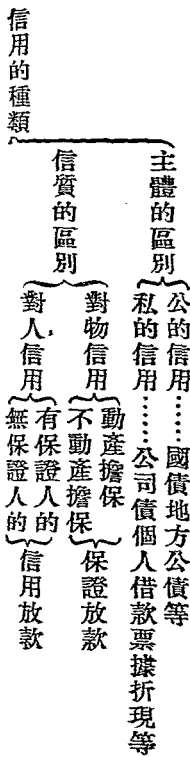 信用的種類
主體的區別
公的信用……國債地方公債等
私的信用……公司債個人借款票據折現等
信質的區別
對物信用
動產擔保
不動產擔保
保證放款
對人信用
有保證人的
無保證人的
信用放款